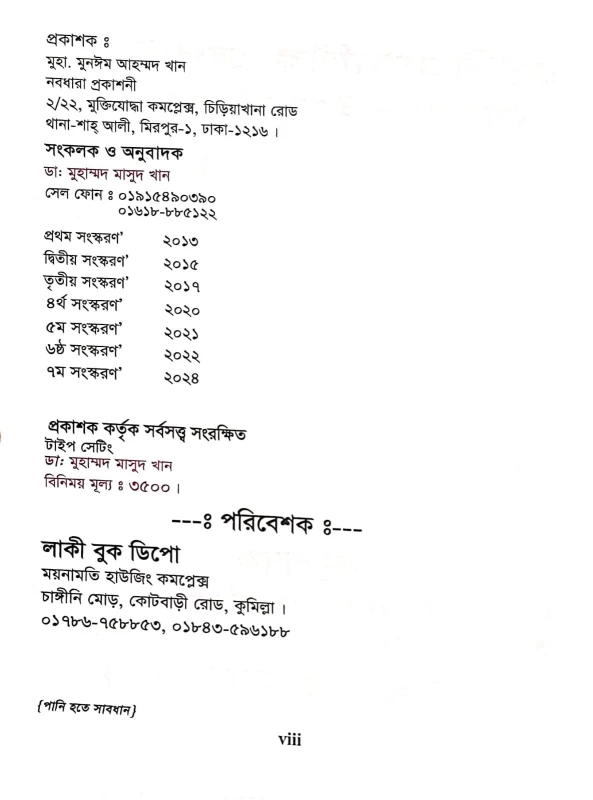 প্রকাশক ঃ
মুহা. মুনঈম আহম্মদ খান
নবধারা প্রকাশনী
২/২২, মুক্তিযোদ্ধা কমপ্লেক্স, চিড়িয়াখানা রোড
থানা-শাহ্ আলী, মিরপুর-১, ঢাকা-১২১৬ ।
সংকলক ও অনুবাদক
ডা: মুহাম্মদ মাসুদ খান
সেল ফোন ঃ ০১৯১৫৪৯০৩৯০
০১৬১৮-৮৮৫১২২
প্রথম সংস্করণ’ ২০১৩
দ্বিতীয় সংস্করণ’ ২০১৫
তৃতীয় সংস্করণ’ ২০১৭
৪র্থ সংস্করণ’ ২০২০
৫ম সংস্করণ’ ২০২১
৬ষ্ঠ সংস্করণ’ ২০২২
৭ম সংস্করণ’ ২০২৪
প্রকাশক কর্তৃক সর্বসত্ত্ব সংরক্ষিত
টাইপ সেটিং
ডা: মুহাম্মদ মাসুদ খান
বিনিময় মূল্য ঃ ৩৫০০ ।
---ঃ পরিবেশক ঃ---
লাকী বুক ডিপো
ময়নামতি হাউজিং কমপ্লেক্স
চাঙ্গীনি মোড়, কোটবাড়ী রোড, কুমিল্লা ।
০১৭৮৬-৭৫৮৮৫৩, ০১৮৪৩-৫৯৬১৮৮
{পানি হতে সাবধান}
viii